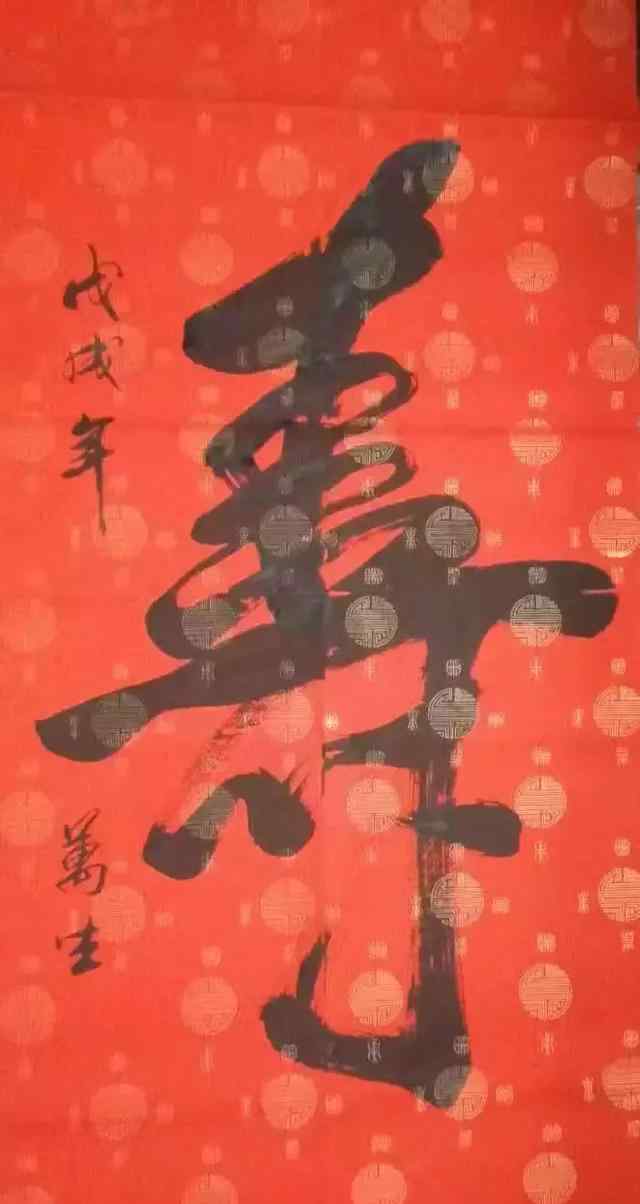 壽
戊戌年
萬生